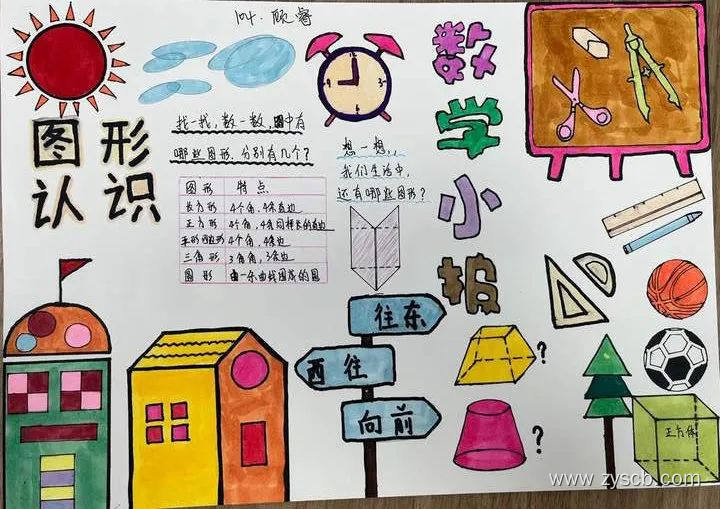 104. 顾睿
数学小报
图形
认识
找一找,数一数,图中有
哪些图形.分别有几个?
想一想,,
我们生活中,
还有哪些图形?
图形 特点
长方形 4个角,4条直边
正方形 4个角,4条同样长的直边
平形四边形 4个角,4条边
三角形 3角角,3条边
圆形 由一条曲线围成的圆
往东
西往
向前
?
?
正方体
www.zyscb.com